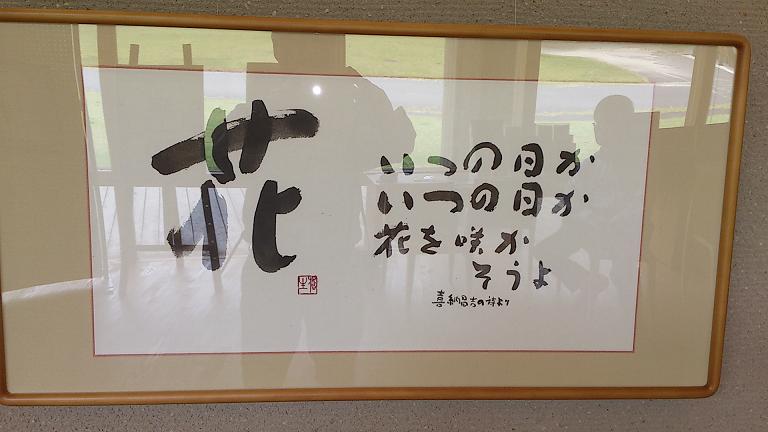 花
いつの日か
いつの日か
花を咲か
そうよ
喜納昌吉の詩より